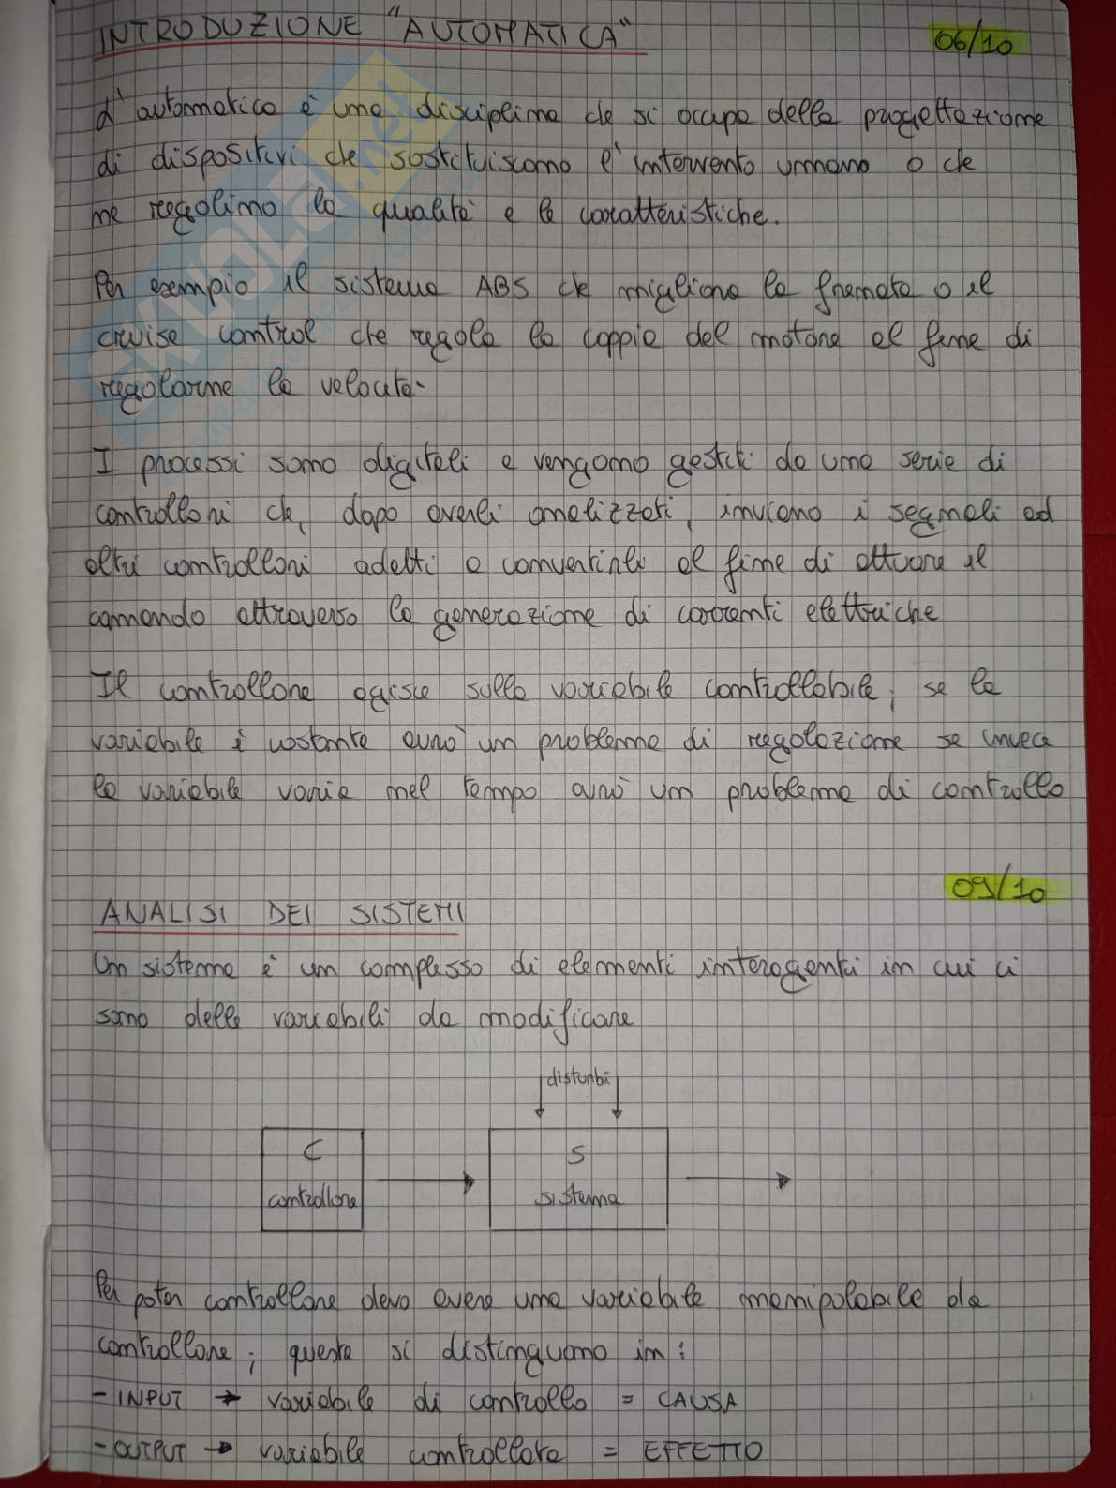 INTRODUZIONE "AUTOMATICA"
06/10
L'automatica è una disciplina che si occupa della progettazione
di dispositivi che sostituiscano l'intervento umano o che
ne regolino la qualità e le caratteristiche.
Per esempio il sistema ABS che migliora la frenata o il
cruise control che regola la coppia del motore al fine di
regolarne la velocità.
I processi sono digitali e vengono gestiti da una serie di
controllori che, dopo averli analizzati, inviano i segnali ad
altri controllori adetti a convertirli al fine di attuare il
comando attraverso la generazione di correnti elettriche
Il controllore agisce sulla variabile controllabile; se la
variabile è costante avrò un problema di regolazione se invece
la variabile varia nel tempo avrò un problema di controllo
09/10
ANALISI DEI SISTEMI
Un sistema è un complesso di elementi interagenti in cui ci
sono delle variabili da modificare
disturbi
C
S
controllore
sistema
Per poter controllare devo avere una variabile manipolabile da
controllare; queste si distinguono in:
- INPUT → variabile di controllo = CAUSA
- OUTPUT → variabile controllata = EFFETTO